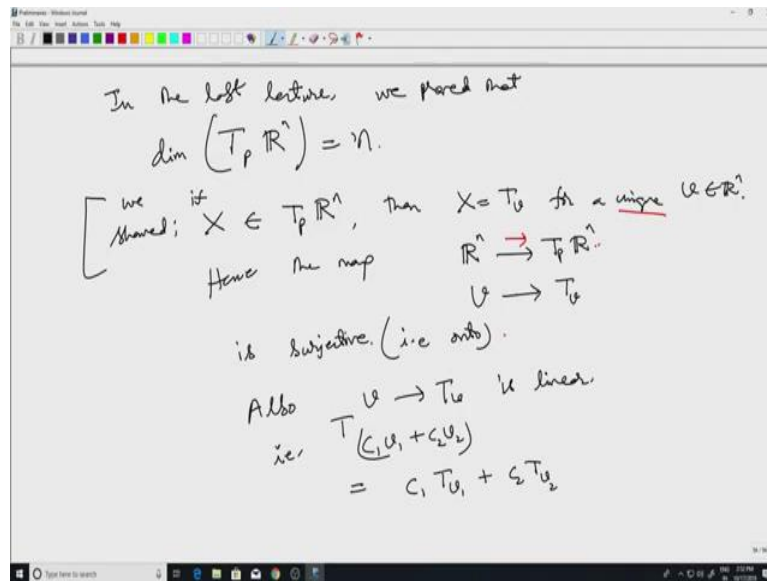 Preliminaries - Windows Journal
File Edit View Insert Actions Tools Help
In the last lecture, we proved that
dim (T_p ℝⁿ) = n.
[ we showed; if X ∈ T_p ℝⁿ, then X = T_v for a unique v ∈ ℝⁿ.
Hence the map ℝⁿ → T_p ℝⁿ.
v → T_v
is surjective. (i.e onto).
Also v → T_v is linear.
i.e. T_(c₁v₁ + c₂v₂)
= c₁ T_v₁ + c₂ T_v₂
Type here to search
ENG 2:12 PM
10/17/2018